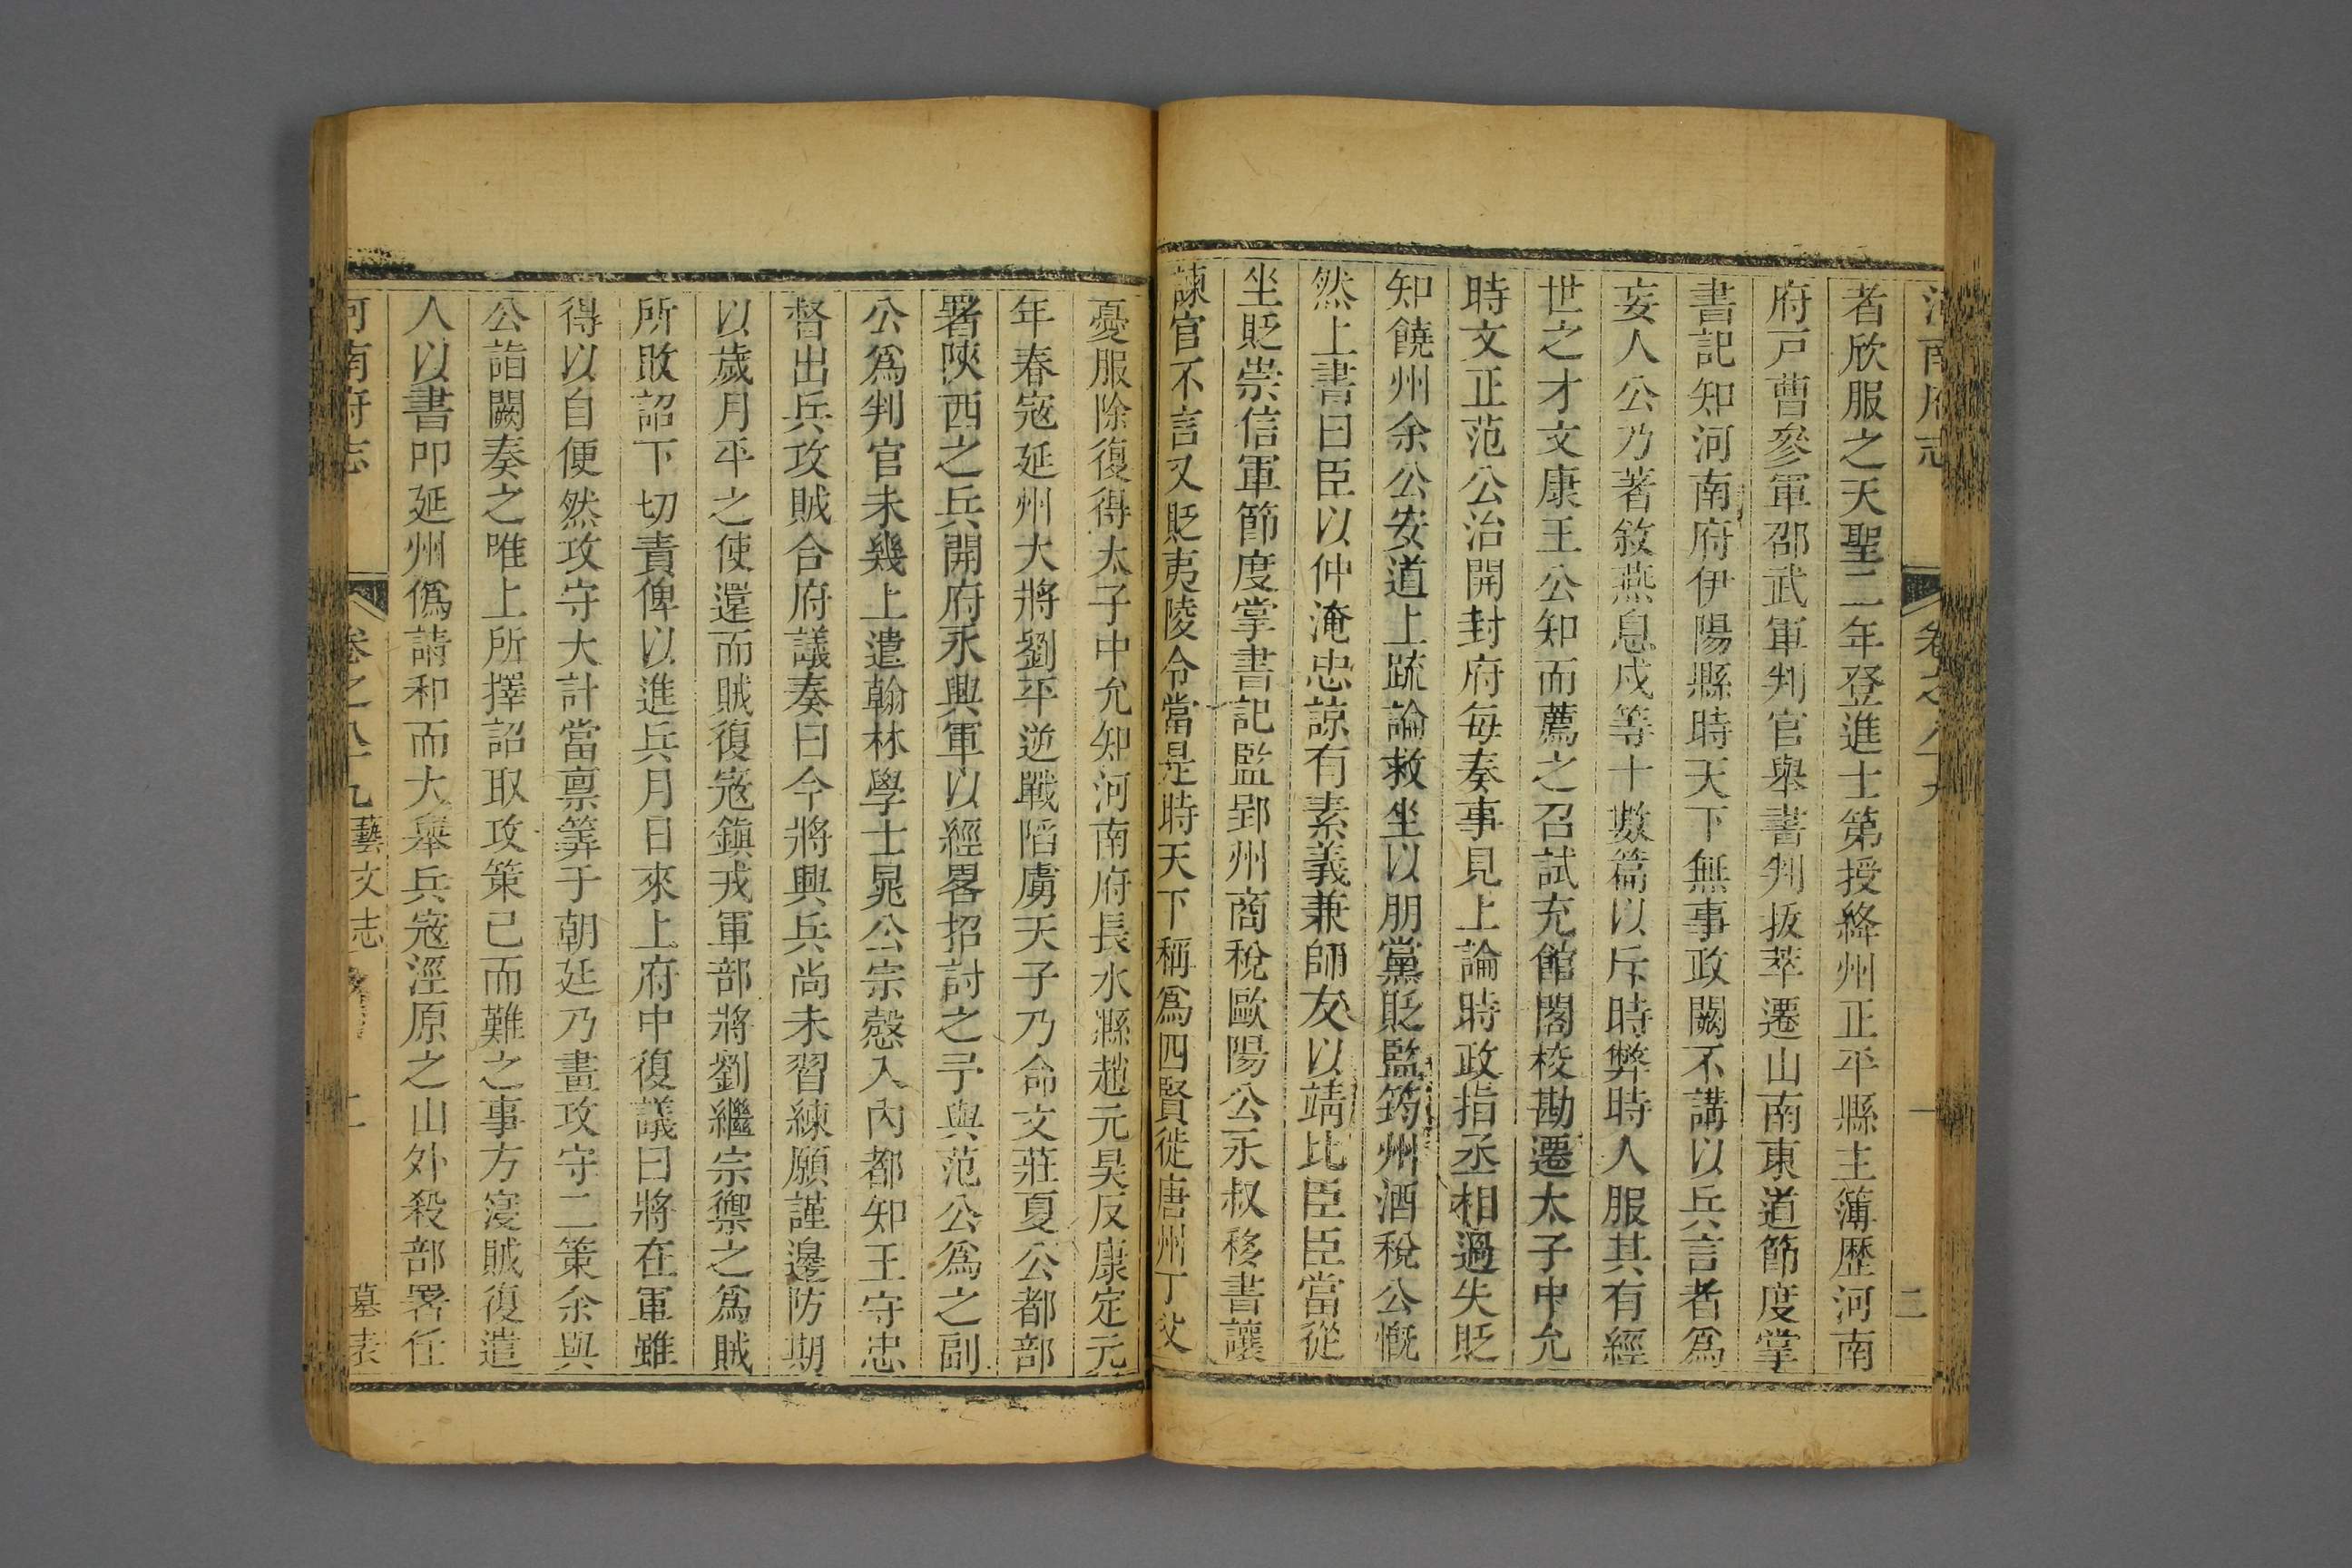 河南府志 卷之八十九 二
者欣服之天聖二年登進士第授絳州正平縣主簿歷河南
府戸曹參軍邵武軍判官舉書判拔萃遷山南東道節度掌
書記知河南府伊陽縣時天下無事政闕不講以兵言者爲
妄人公乃著敘燕息戍等十數篇以斥時弊時人服其有經
世之才文康王公知而薦之召試充館閣校勘遷太子中允
時文正范公治開封府每奏事見上論時政指丞相過失貶
知饒州余公安道上疏論救坐以朋黨貶監筠州酒稅公慨
然上書曰臣以仲淹忠諒有素義兼師友以靖比臣臣當從
坐貶崇信軍節度掌書記監郢州商稅歐陽公永叔移書讓
諫官不言又貶夷陵令當是時天下稱爲四賢徙唐州丁父
憂服除復得太子中允知河南府長水縣趙元昊反康定元
年春寇延州大將劉平逆戰陷虜天子乃命文莊夏公都部
署陝西之兵開府永興軍以經畧招討之予與范公爲之副
公爲判官未幾上遣翰林學士晁公宗慤入內都知王守忠
督出兵攻賊合府議奏曰今將興兵尚未習練願謹邊防期
以歲月平之使還而賊復寇鎮戎軍部將劉繼宗禦之爲賊
所敗詔下切責俾以進兵月日來上府中復議曰將在軍雖
得以自便然攻守大計當禀筭于朝廷乃畫攻守二策余與
公詣闕奏之唯上所擇詔取攻策已而難之事方寖賊復遣
人以書叩延州僞請和而大舉兵寇涇原之山外殺部署任
河南府志 卷之八十九 藝文志 墓表